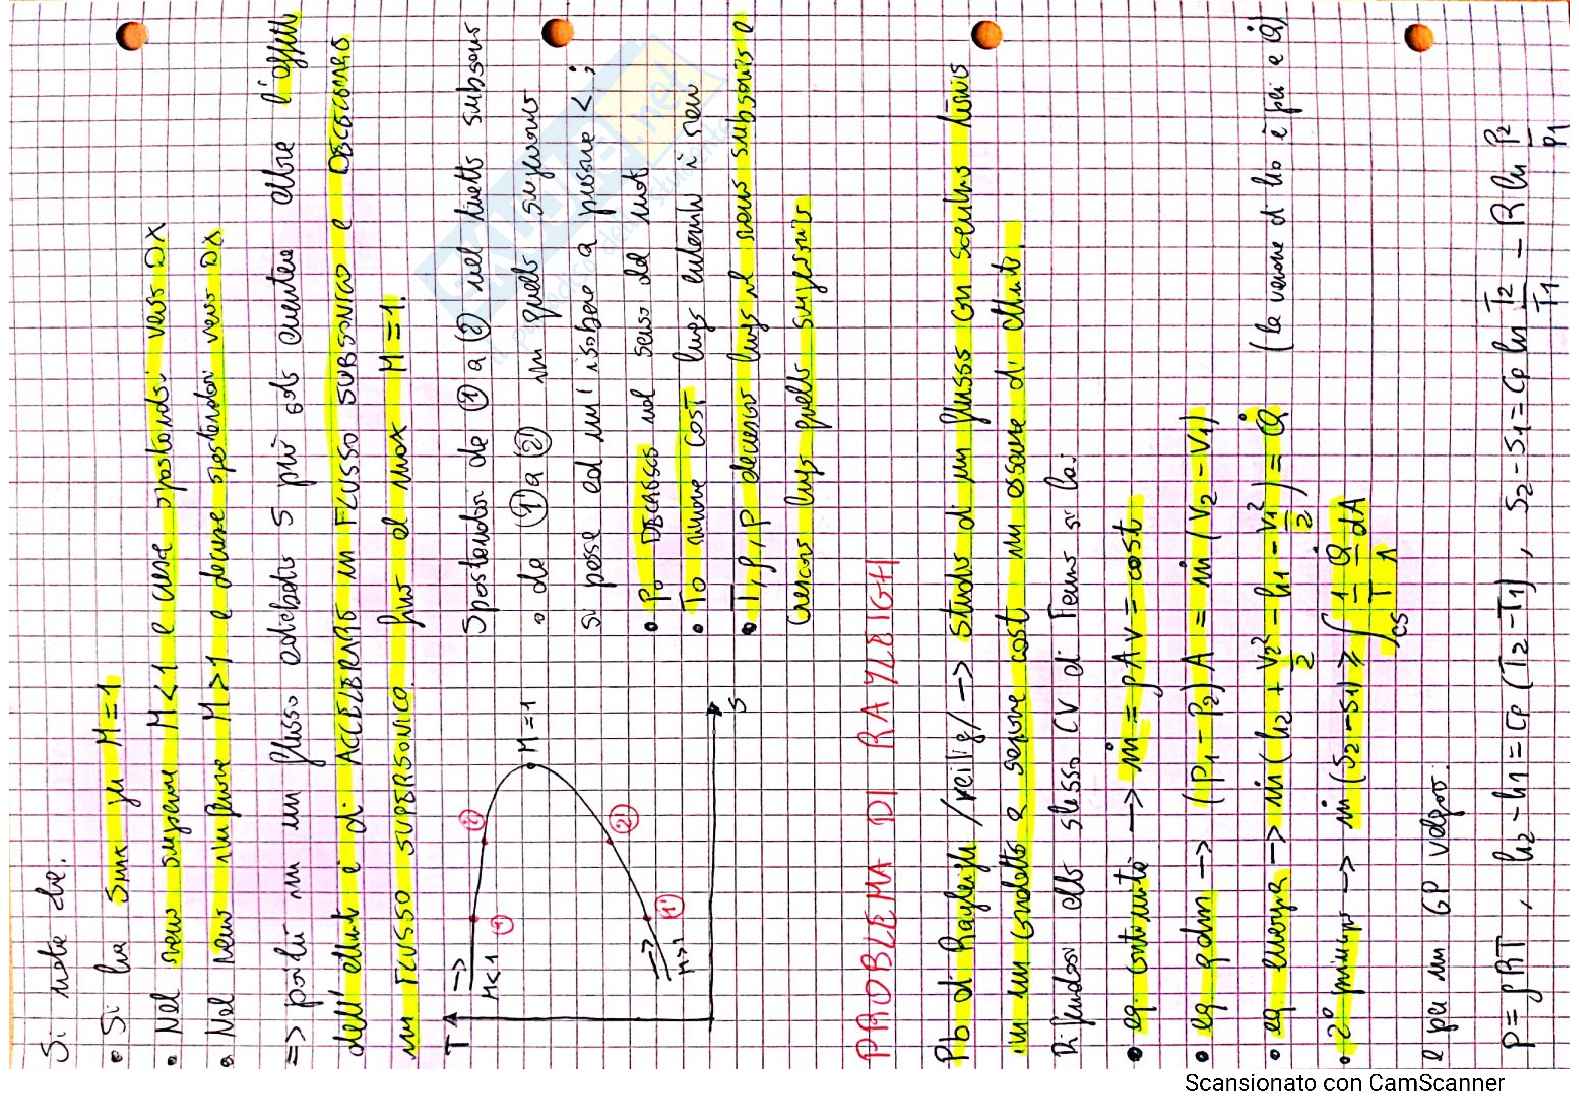 Si note che:
• Si ha Smax per M=1
• Nel ramo superiore M<1 e cresce spostandosi verso DX
• Nel ramo inferiore M>1 e decresce spostandosi verso DX
=> poiché in un flusso adiabatico S può solo aumentare allora l'effetto
dell'attrito è di ACCELERARE un FLUSSO SUBSONICO e DECELERARE
un FLUSSO SUPERSONICO fino al max M=1.
T
-->
M<1
①
②
M=1
②'
①'
-->
M>1
S
Spostandosi da ① a ② nel tratto subsonico
o da ①' a ②' in quello supersonico
si passa ad un'isobara a pressione < ;
• Po DECRESCE nel senso del moto
• To rimane COST lungo entrambi i rami
• T, ρ, P decrescono lungo il ramo subsonico e
crescono lungo quello supersonico
PROBLEMA DI RAYLEIGH
Pb di Rayleigh /reilig/ -> studio di un flusso con scambio termico
in un condotto a sezione cost in assenza di attrito.
Riferendosi allo stesso CV di Fanno si ha:
• eq. continuità -> ṁ = ρAv = cost
• eq qdm -> (P1 - P2)A = ṁ(V2 - V1)
• eq. energia -> ṁ(h2 + V2²/2 - h1 - V1²/2) = Q̇ (la variazione di ho è pari a Q̇)
• 2° principio -> ṁ(S2 - S1) ≥ ∫CS 1/T Q̇/A dA
e per un GP valgono:
P = ρRT , h2 - h1 = cp(T2 - T1) , S2 - S1 = cp ln T2/T1 - R ln P2/P1
Scansionato con CamScanner